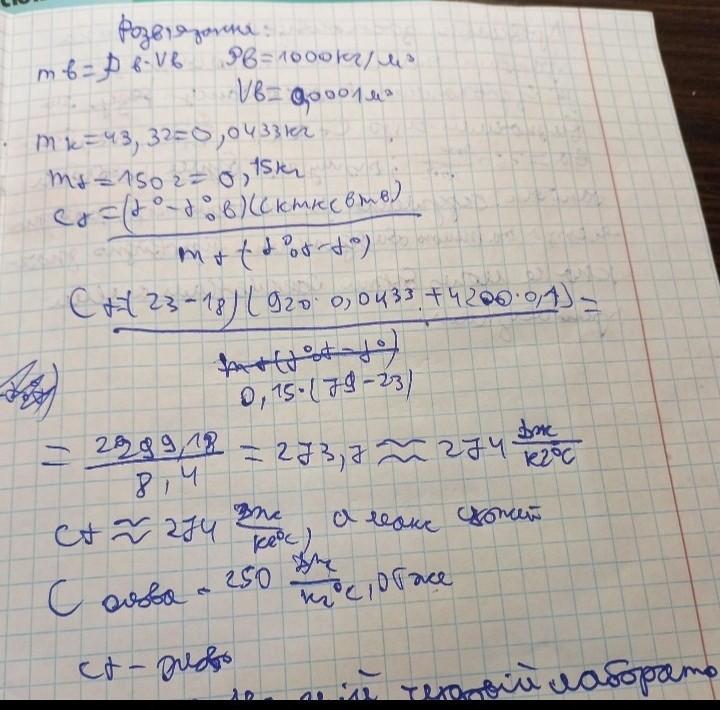 Розв'язання:
mв=ρв·Vв ρв=1000кг/м³
Vв=0,0001м³
mк=43,3г=0,0433кг
mт=150г=0,15кг
cт=(t°-t°₀в)(cкmк+cвmв)
mт(t°₀т-t°)
Cт=(23-18)(920·0,0433+4200·0,1)=
0,15·(79-23)
= 2299,18 / 8,4 = 273,7 ≈ 274 Дж/кг°С
cт ≈ 274 Дж/кг°С, а
C олова = 250 Дж/кг°С, отже
cт - олово
лаборато